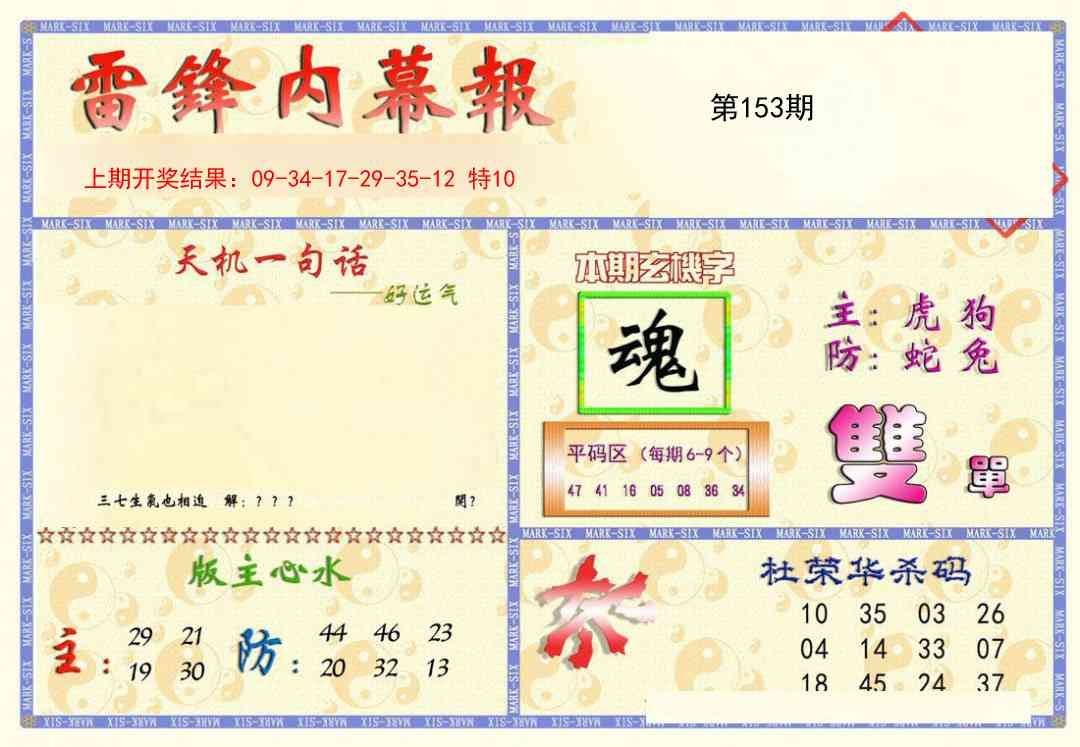 雷鋒内幕報
第153期
上期开奖结果：09-34-17-29-35-12 特10
天机一句话
——好运气
三七生氣也相迫 解：？？？ 開？
本期玄機字
魂
主：虎 狗
防：蛇 兔
平码区（每期6-9个）
47 41 16 05 08 36 34
雙 單
☆☆☆☆☆☆☆☆☆☆☆☆☆☆☆☆☆☆☆☆☆☆☆
版主心水
主：29 21
19 30
防：44 46 23
20 32 13
杀
杜荣华杀码
10 35 03 26
04 14 33 07
18 45 24 37
MARK-SIX